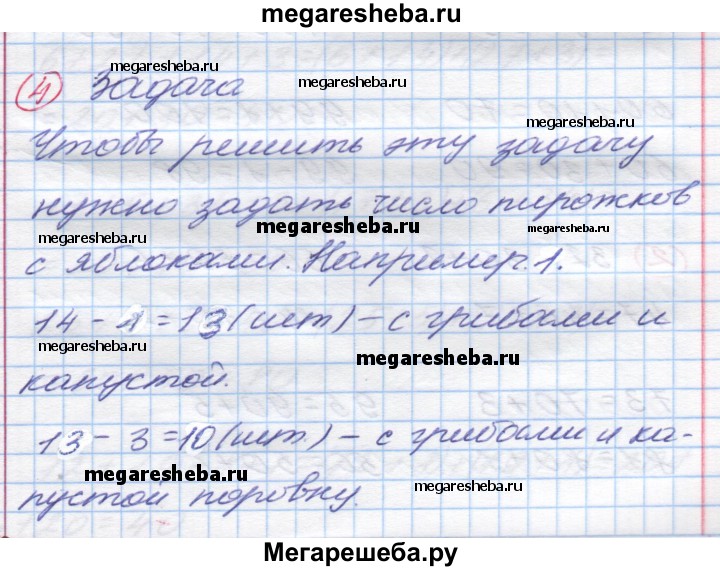 megaresheba.ru
megaresheba.ru
4 Задача
megaresheba.ru
megaresheba.ru
Чтобы решить эту задачу
нужно задать число пирожков
megaresheba.ru
megaresheba.ru
с яблоками. Например: 1.
14 - 1 = 13 (шт) - с грибами и
megaresheba.ru
megaresheba.ru
капустой.
13 - 3 = 10 (шт.) - с грибами и ка-
megaresheba.ru
megaresheba.ru
пустой поровну.
Мегарешеба.ру